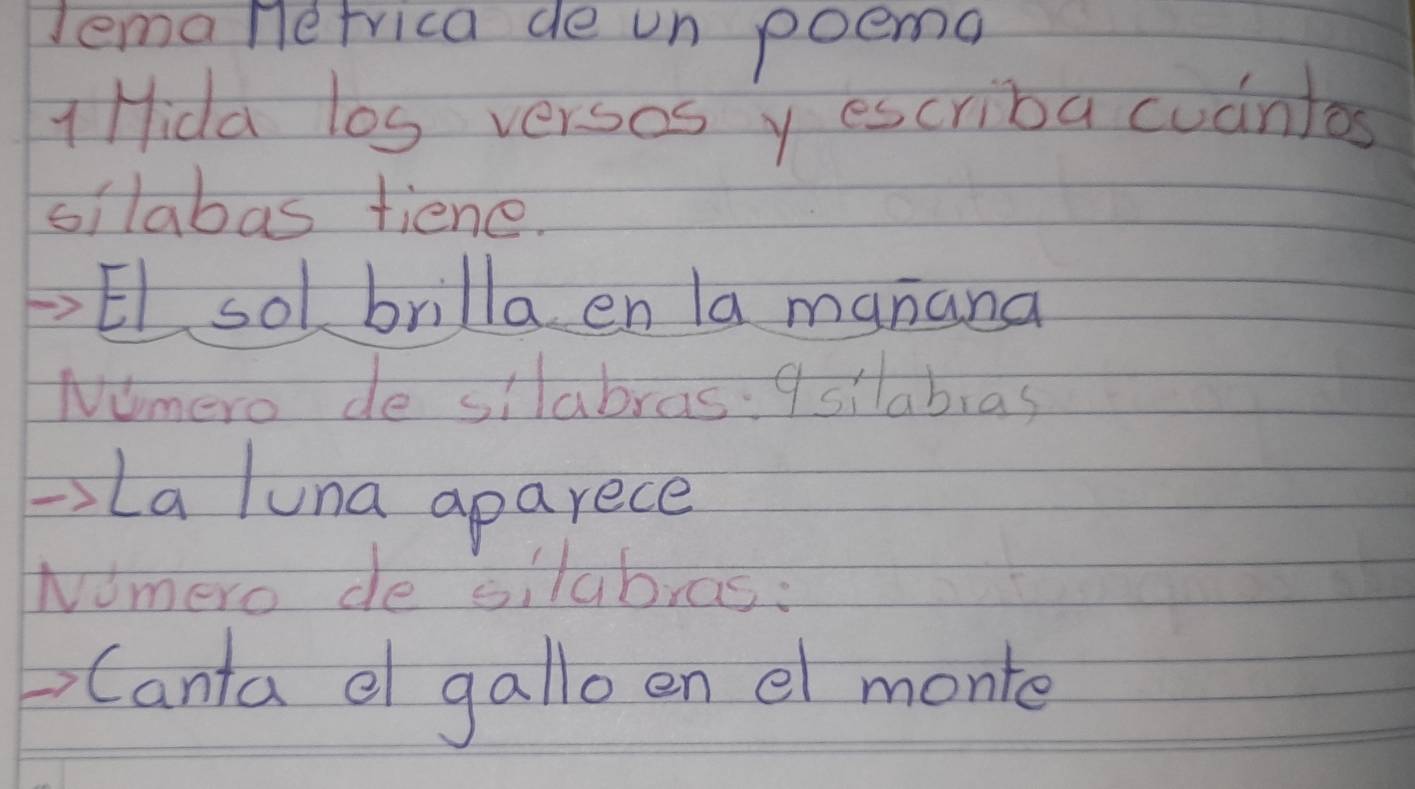 Tema Métrica de un poema
1 Mida los versos y escriba cuántos
sílabas tiene.
→ El sol brilla en la mañana
Número de sílabras: 9 sílabias
→ La luna aparece
Número de sílabras:
→ Canta el gallo en el monte